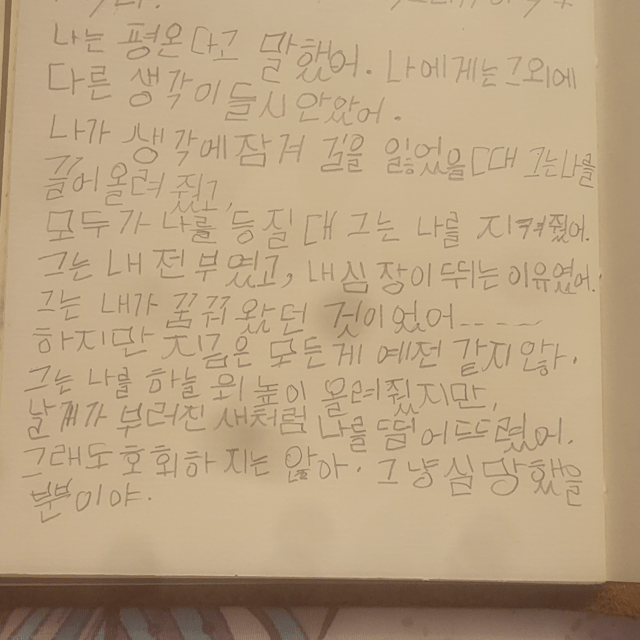 나는 평온다고 말했어. 나에게는 그 외에
다른 생각이 들지 안았어.
나가 생각에 잠겨 길을 잃었을 때 그는 나를
끌어올려 줬고,
모두가 나를 등질 대 그는 나를 지켜줬어.
그는 내 전부였고, 내 심장이 뛰는 이유였어.
그는 내가 꿈꿔 왔던 것이었어-----
하지만 지금은 모든게 예전 같지 않아.
그는 나를 하늘 위 높이 올려줬지만,
날개가 부러진 새처럼 나를 떨어뜨렸어.
그래도 호회하지는 않아. 그냥 심망했을
뿐이야.